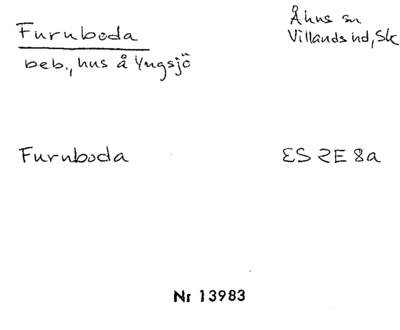 Furuboda
Åhus sn
Villands hd, Sk
beb., hus å Yngsjö
Furuboda
ES 2E 8a
Nr 13983